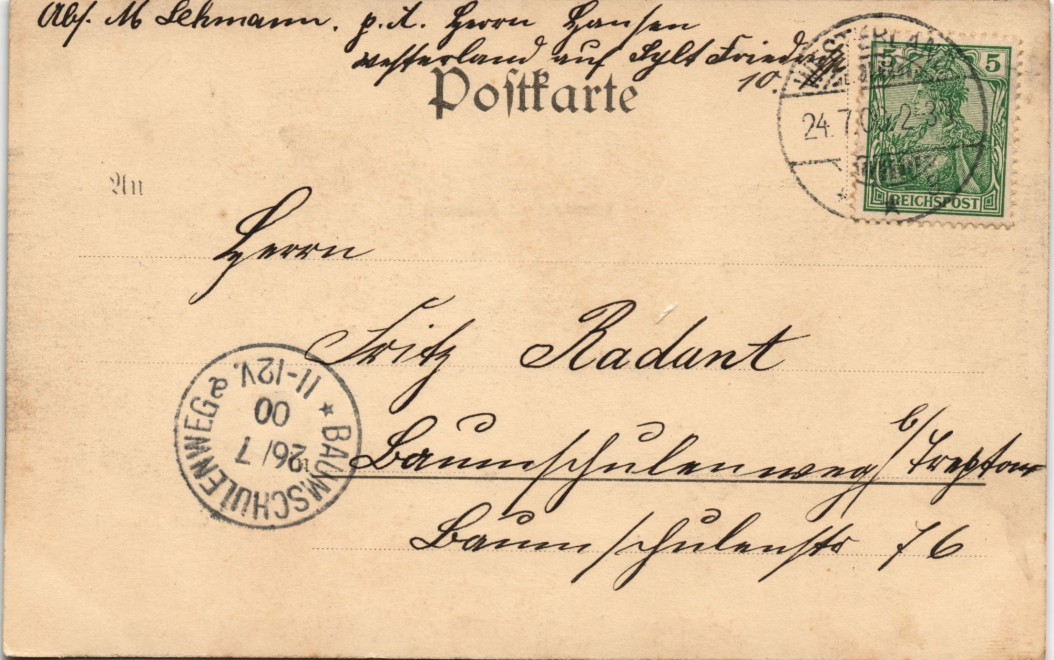 Abs. M Lehmann. p. A. Herrn Hansen
Westerland auf Sylt Friedrich
10.
Postkarte
5 5
WESTERLAND
24.7.00
REICHSPOST
An
Herrn
Fritz Radant
Baumschulenweg b/ Treptow
Baumschulenstr 76
BAUMSCHULENWEG
26/7
00
11-12V.